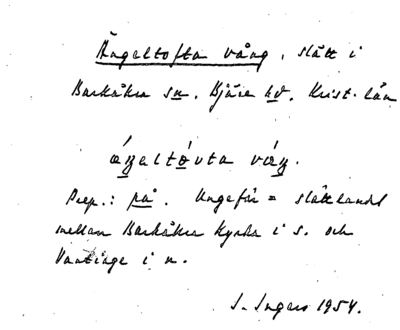 Ängeltofta vång, slätt i
Barkåkra sn. Bjäre hd. Krist. län
áŋəltòvta váŋ.
Prep.: på. Ungefär = slättlandet
mellan Barkåkra kyrka i s. och
Vantinge i n.
I. Ingers 1954.